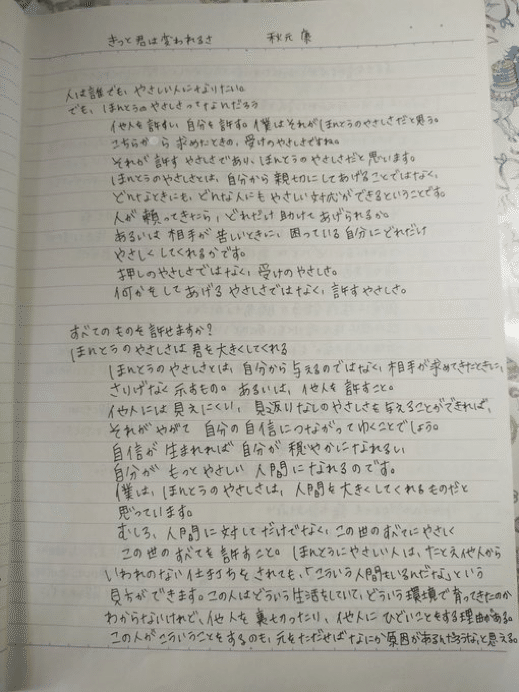 きっと君は変われるさ 秋元 康
人は誰でも、やさしい人になりたい。
でも、ほんとうのやさしさってなんだろう
他人を許すし、自分を許す。僕はそれがほんとうのやさしさだと思う。
こちらから求めたときの、受けのやさしさですね。
それが許すやさしさであり、ほんとうのやさしさだと思います。
ほんとうのやさしさとは、自分から親切にしてあげることではなく、
どんなときにも、どんな人にもやさしい対応ができるということです。
人が頼ってきたら、どれだけ助けてあげられるか。
あるいは相手が苦しいときに、困っている自分にどれだけ
やさしくしてくれるかです。
押しのやさしさではなく、受けのやさしさ。
何かをしてあげるやさしさではなく、許すやさしさ。
すべてのものを許せますか?
ほんとうのやさしさは君を大きくしてくれる
ほんとうのやさしさとは、自分から与えるのではなく、相手が求めてきたときに、
さりげなく示すもの。あるいは、他人を許すこと。
他人には見えにくい、見返りなしのやさしさを与えることができれば、
それがやがて自分の自信につながってゆくことでしょう。
自信が生まれれば自分が穏やかになれるし、
自分がもっとやさしい人間になれるのです。
僕は、ほんとうのやさしさは、人間を大きくしてくれるものだと
思っています。
むしろ、人間に対してだけでなく、この世のすべてにやさしく
この世のすべてを許すこと。ほんとうにやさしい人は、たとえ他人から
いわれのない仕打ちをされても、「こういう人間もいるんだな」という
見方ができます。この人はどういう生活をしていて、どういう環境で育ってきたのか
わからないけれど、他人を裏切ったり、他人にひどいことをする理由がある。
この人がこういうことをするのも、元をただせばなにか原因があるんだろうな、と思える。